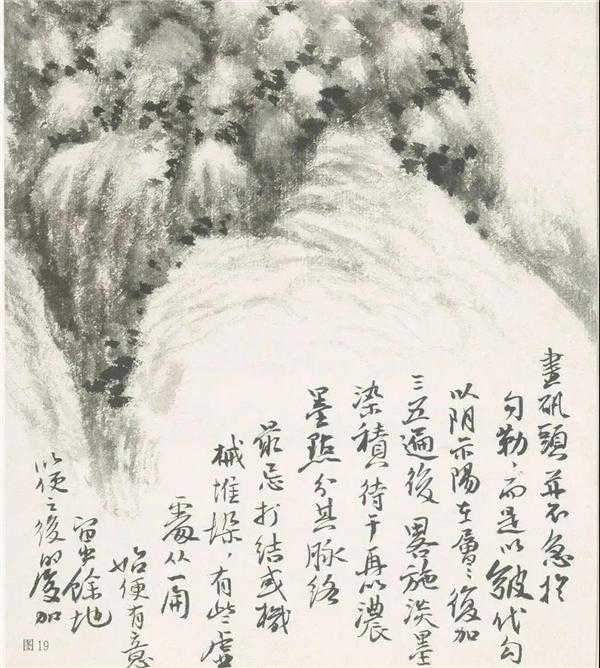 畫矾頭并不急於
勾勒，而是以皴代勾
以阴示陽在層々復加
三五遍後畧施淡墨
染積待干再以濃
墨點分其脉络
最忌打结或機
械堆垛，有些虚
處从一開
始便有意
留出餘地
以便之後的加
图19